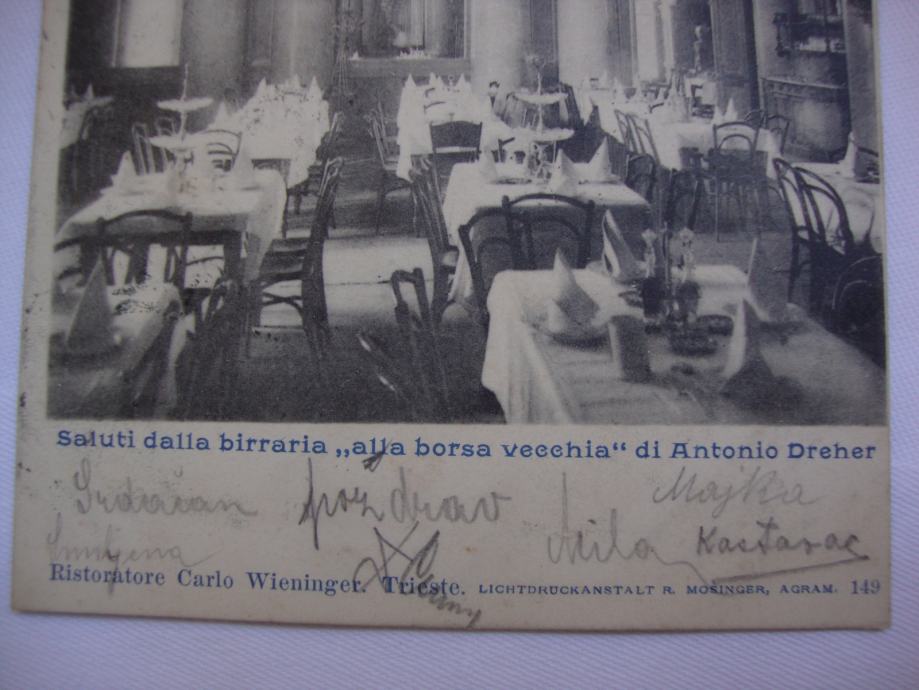 Saluti dalla birraria „alla borsa vecchia“ di Antonio Dreher
Srdačan pozdrav Majka
Mila Kastavac
Ristoratore Carlo Wieninger. Trieste. LICHTDRUCKANSTALT R. MOSINGER, AGRAM. 149